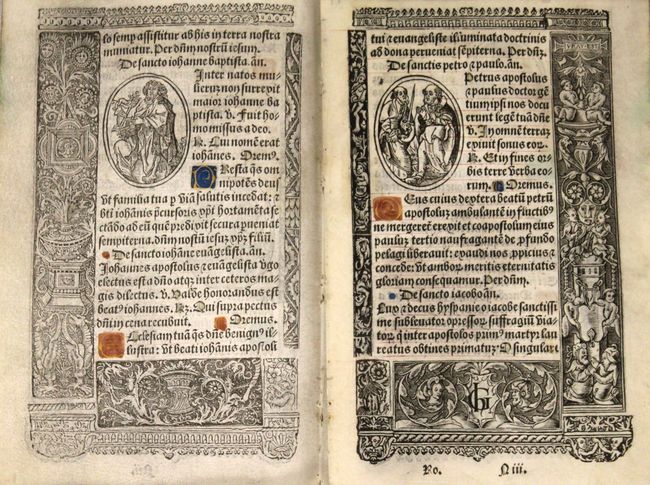 lo semp assistitur ab his in terra nostra
muniatur. Per dñm nostrũ iesum.
De sancto iohanne baptista. añ.
Inter natos mu
lierum non surrexit
maior iohanne ba
ptista. v. Fuit ho-
mo missus a deo.
R. Cui nomē erat
iohānes. Oremꝰ.
Resta q̄s om
nipotēs deus
vt familia tua p viā salutis incedat: et
bti iohānis
sectādo ad eũ quē predixit secura pueniat
sempiterna. dñm nostrũ iesum filiũ.
De sancto iohāne evāgelista. añ.
Johannes apostolus et evāgelista virgo
electus est a dño atq̄ inter ceteros ma-
gis dilectus. v. Valde honorandus est
beatꝰ iohannes. R. Qui supra pectus
dñi in cena recubuit. Oremus.
Ecclesiam tuā q̄s dñe benignꝰ il-
lustra: vt beati iohānis apostoli
tui et evangeliste illuminata doctrinis
ad dona perueniat sempiterna. Per dñm.
De sanctis petro et paulo. añ.
Petrus apostolus
et paulus doctor gē
tium ipsi nos docu
erunt legē tuā dñe
v. In omnē terrā
exiuit sonus eoꝝ.
R. Et in fines or-
bis terre verba eo-
rum. Oremus.
Eus cuius dextera beatũ petrũ
apostolũ ambulantē in fluctibꝰ
ne mergeret erexit et coapostolum eius
paulũ tertio naufragantē de pfundo
pelagi liberauit: exaudi nos ppicius et
concede: vt amboꝝ meritis eternitatis
gloriam consequamur. Per dñm.
De sancto iacobo añ.
Lux et decus hyspanie o iacobe sanctissi
me subleuator oppressoꝝ suffragiũ via-
toꝝ q inter apostolos primꝰ martyr lau
reatus obtines primatũ. O singulare
G
Ro. N iii.